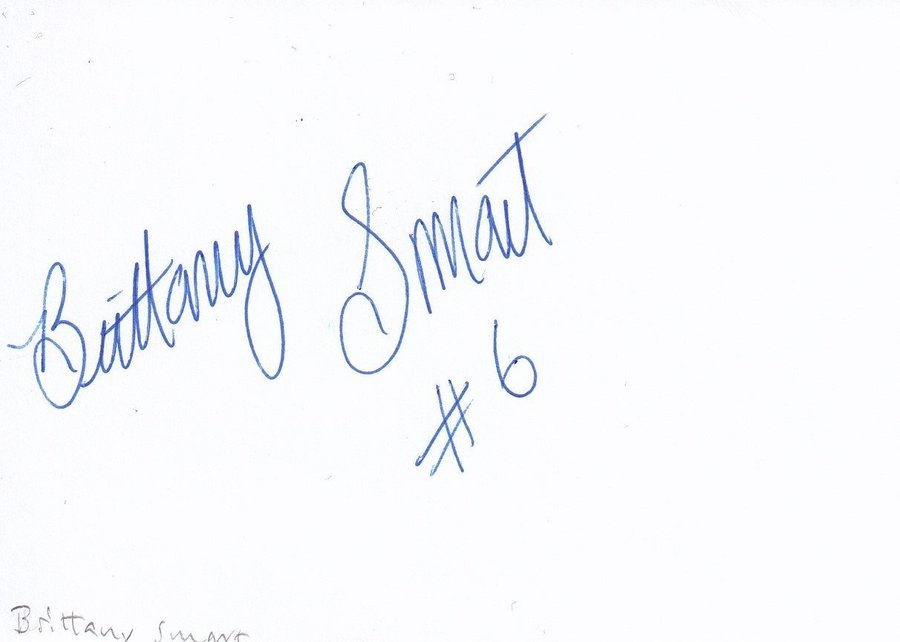 Brittany Smart
#6
Brittany Smart